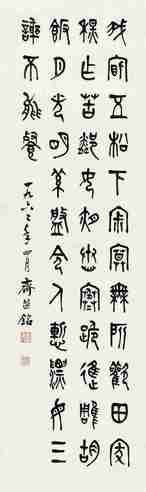 我宿五松下寂寥無所歡田家
秋作苦鄰女夜舂寒跪進雕胡
飯月光明素盤令人慚漂母三
謝不能餐 一九六二年四月 齊燕銘